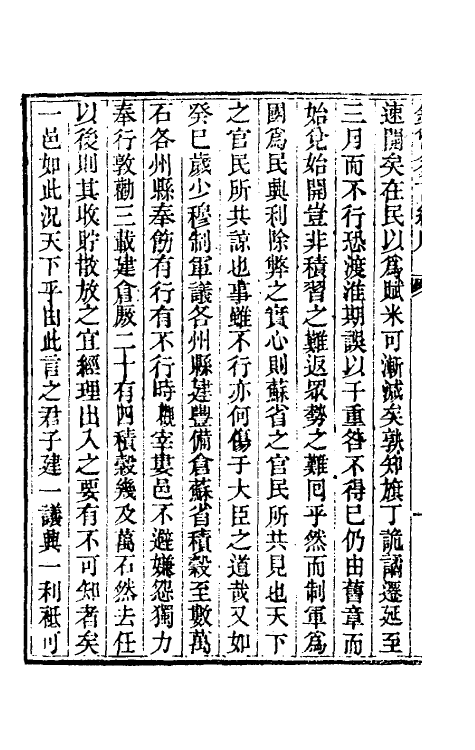 速開矣在民以爲賦米可漸減矣孰知旗丁詭譎遷延至
三月而不行恐渡淮期誤以干重咎不得已仍由舊章而
始兌始開豈非積習之難返眾勢之難囘乎然而制軍爲
國爲民興利除弊之實心則蘇省之官民所共見也天下
之官民所共諒也事雖不行亦何傷于大臣之道哉又如
癸巳歲少穆制軍議各州縣建豐備倉蘇省積穀至數萬
石各州縣奉飭有行有不行時觀宰婁邑不避嫌怨獨力
奉行敦勸三載建倉厫二十有四積穀幾及萬石然去任
以後則其收貯散放之宜經理出入之要有不可知者矣
一邑如此況天下乎由此言之君子建一議興一利祗可